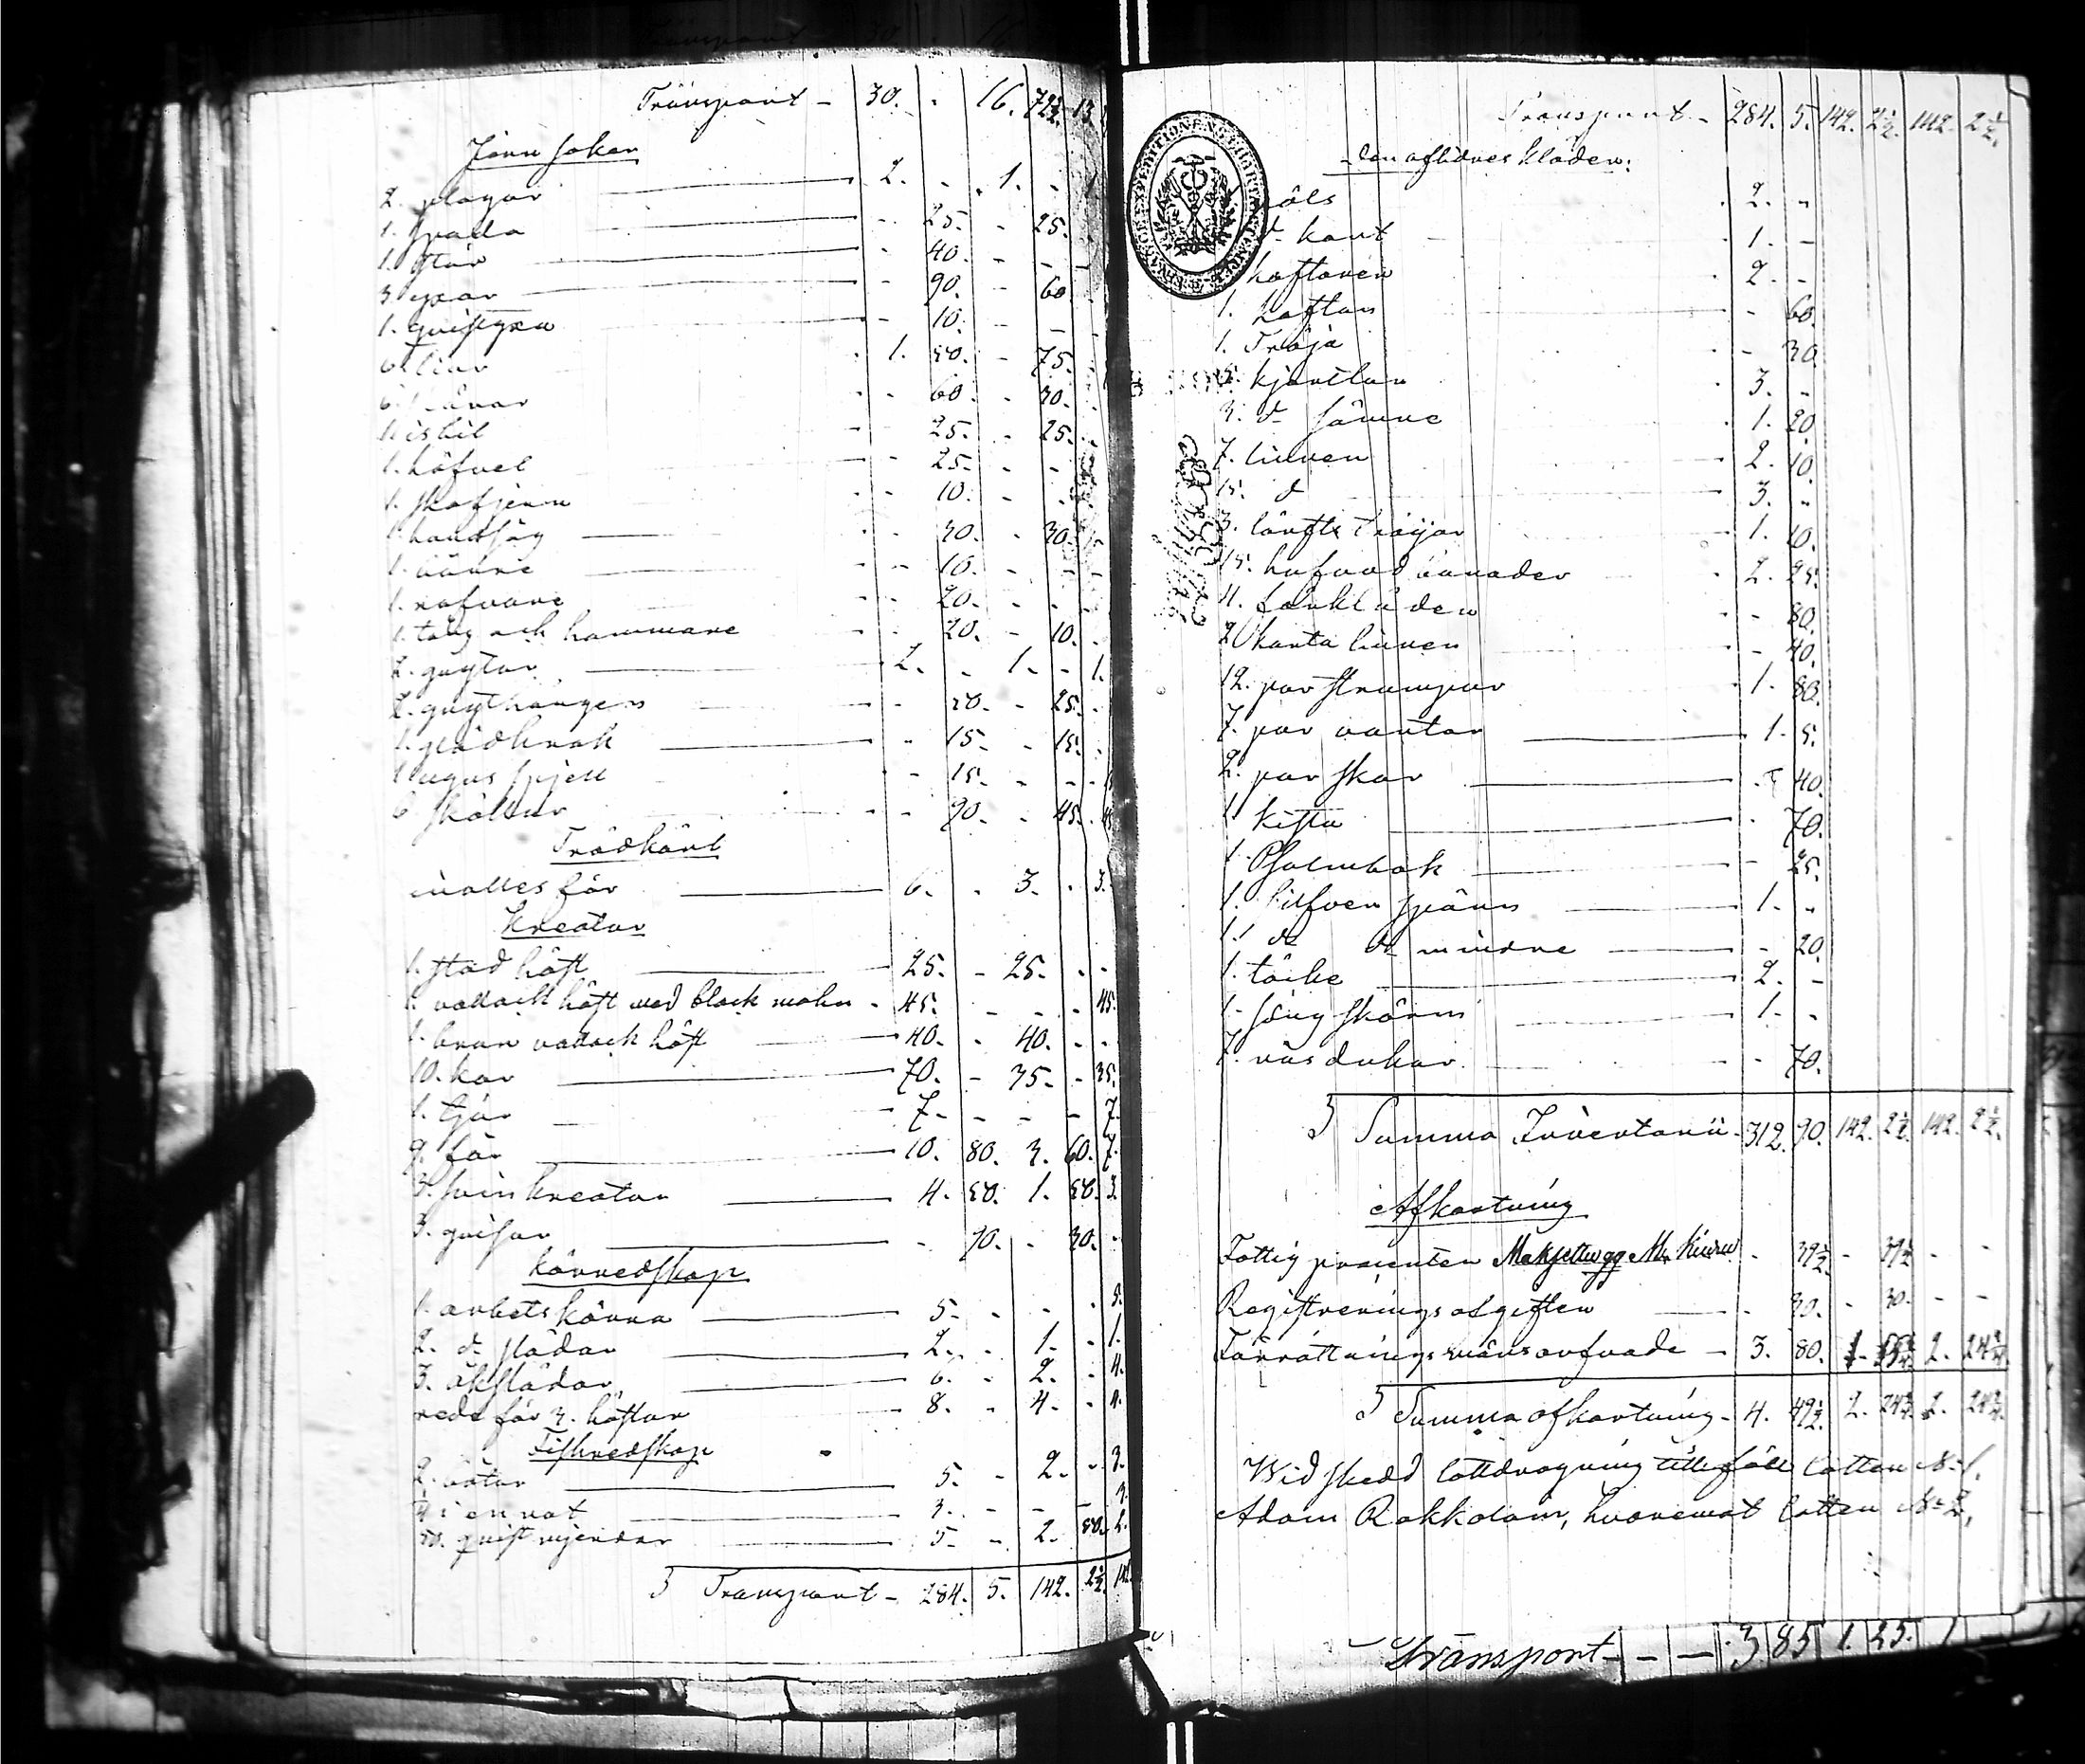 Transport - 30. - 16. 72½ 13.
Jern saker
2. plogar - 2. - 1. -
1. spada - 25. - 25.
1. stör - 40. - -
3 yxor - 90. - 60
1. quistyxa - 10. - -
6. liar - 1. 50. - 75.
6. skäror - 60. - 30.
1. isbil - 25. - 25.
1. höfvel - 25. - -
1. skafjern - 10. -
1. handsåg - 30. - 30.
1. - 10. - -
1. nafvare - 20. - -
1. tång och hammare - 20. - 10.
2. grytor - 2. - 1. - 1.
2. grythängen - 50. - 25.
1. glödkrok - 15. - 15.
1. ugns spjell - 15. - -
6 skållar - 90. - 45. 45
Trädkäril
inalles för - 6. - 3. - 3.
Kreatur
1. stod häst - 25. - 25. - -
1. vallack häst med black mahn - 45. - - - 45.
1. brun vallack häst - 40. - 40. - -
10. kor - 70. - 35. - 35.
1. tjur - 7. - - - 7.
9. får - 10. 80. 3. 60. 7.
3. svin kreatur - 4. 50. 1. 50. 3.
3. grisar - 90. - 30. -
Körredskap
1. arbets kärra - 5. - - - 5.
2. d:o slädar - 2. - 1. - 1.
3. åkslädar - 6. - 2. - 4.
rede för 3. hästar - 8. - 4. - 4.
Fiskredskap
2. båtar - 5. - 2. - 3.
i en not - 3. - - - 3.
5. - 2. 50. 2.
Transport - 284. 5. 142. 2½. 142.
Transport - 284. 5. 142. 2½. 142. 2½.
den aflidnes kläder.
päls - 2. -
d:o kort - 1. -
koftoren - 2. -
1. koftan - 60.
1. Tröja - 30.
5. kjortlar - 3. -
3. d:o sämre - 1. 20
7. linnen - 2. 10.
15. d:o - 3. -
3. lärfts tröijor - 1. 10.
15. hufvud bonader - 2. 25.
4. förkläden - 80.
2 korta linnen - 40.
12. par strumpor - 1. 80.
7. par vantar - 1. 5.
2. par skor - 40.
1 kista - 70.
1 Psalmbok - 25.
1. silfver spänn - 1. -
1. d:o d:o mindre - 20
1. täcke - 2. -
1. säng skärm - 1. -
7. näs dukar - 70.
Summa Inventarii - 312. 90. 142. 2½. 142. 2½.
Afkortning
Fattig procenten - 39½. - 39½ - -
Registrerings afgiften - 30. - 30. - -
Förrättningsmäns arfvode - 3. 80. 1. 55¼ 2. 24¾
Summa afkortning - 4. 49½ 2. 24¾. 2. 24¾.
Wid skedd lottdragning tillföll lotten N:o 1.
Adam Rokkolain, hvaremot lotten N:o 2,
Transport - - - 3 85 1. 25. 1